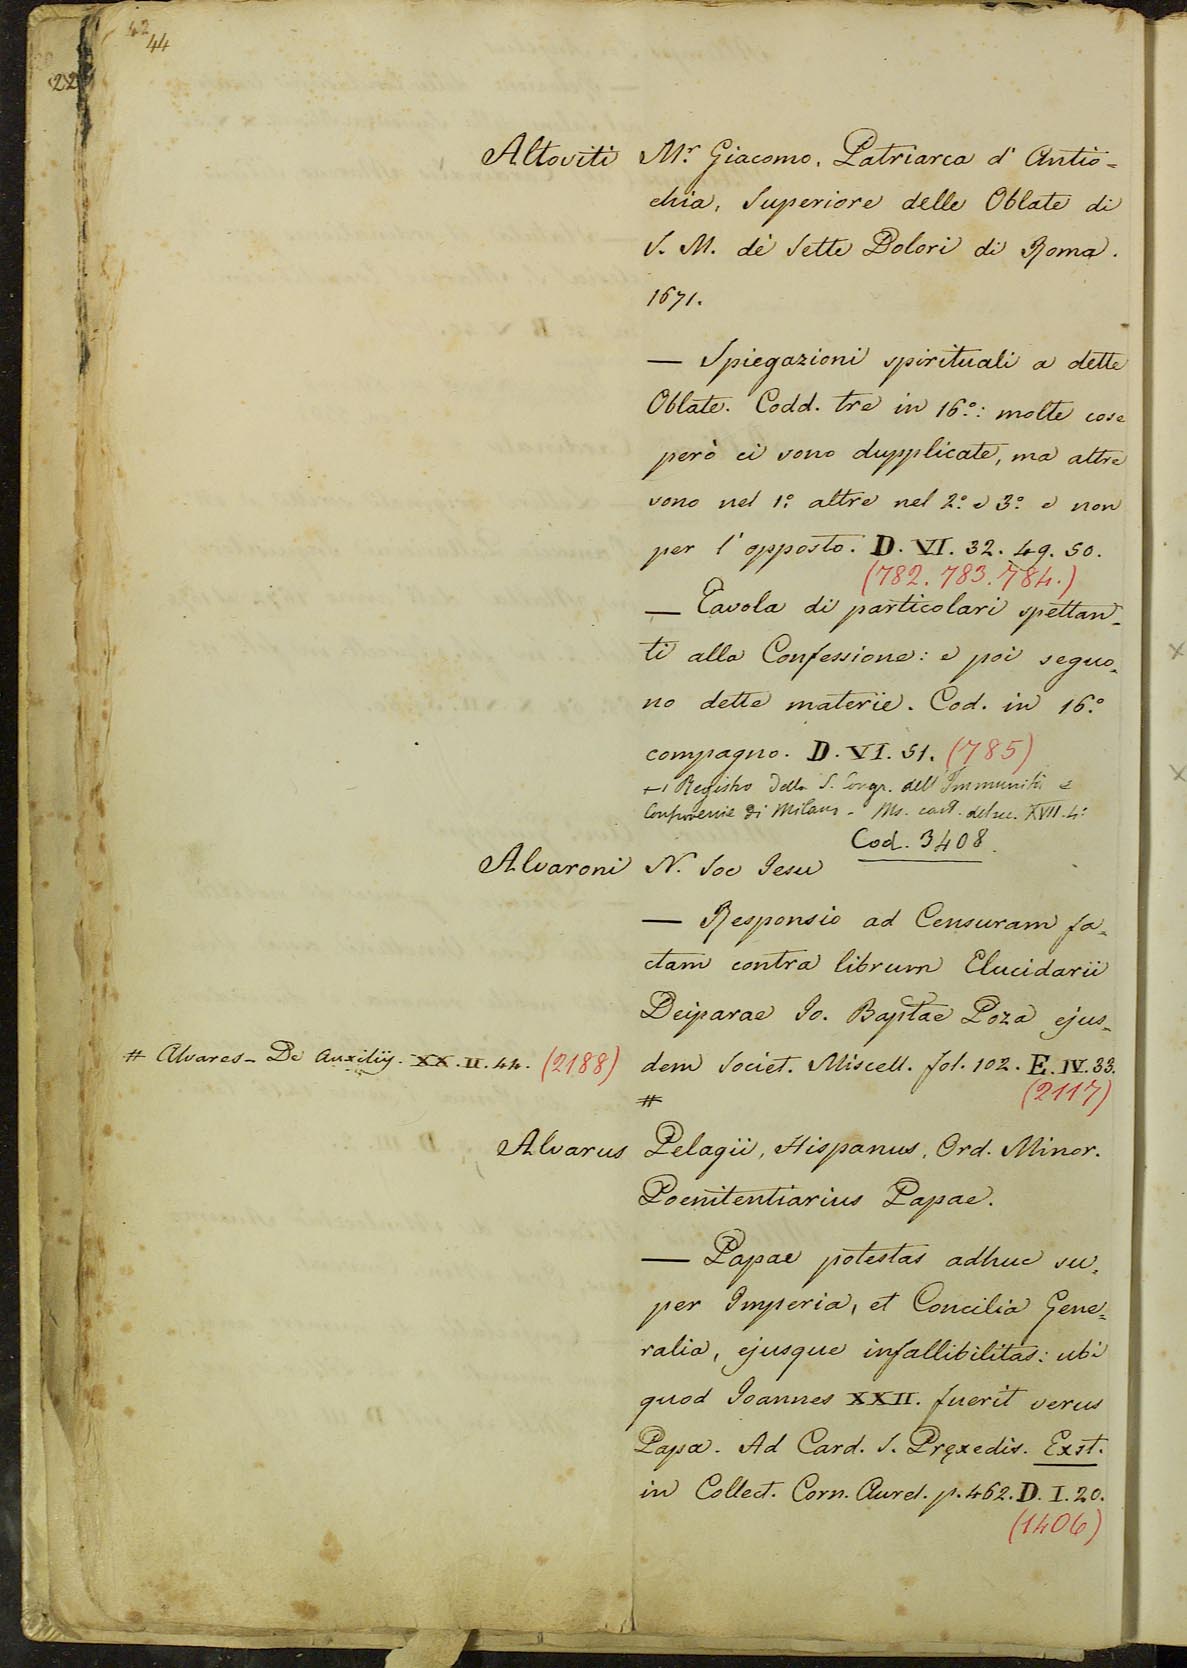 42
44
22
Altoviti Mr. Giacomo, Patriarca d' Antio=
chia, Superiore delle Oblate di
S. M. dè Sette Dolori di Roma.
1671.
— Spiegazioni spirituali a dette
Oblate. Codd. tre in 16.º: molte cose
però ci sono dupplicate, ma altre
sono nel 1.º altre nel 2.º e 3.º e non
per l' opposto. D. VI. 32. 49. 50.
(782. 783. 784.)
— Tavola di particolari spettan=
ti alla Confessione: e poi seguo=
no dette materie. Cod. in 16.º
compagno. D. VI. 51. (785)
Registro della S. Congr. dell' Immunità e
di Milano - Ms. cart. del sec. XVII. 4:
Cod. 3408.
Alvaroni N. Soc Jesu
— Responsio ad Censuram fa=
ctam contra librum Elucidarii
Deiparae Jo. Baptae Poza ejus=
# Alvares - De Auxilijs. XX. II. 44. (2188) dem Societ. Miscell. fol. 102. E. IV. 33.
(2117)
#
Alvarus Pelagii, Hispanus, Ord. Minor.
Poenitentiarius Papae.
— Papae potestas adhuc su=
per Imperia, et Concilia Gene=
ralia, ejusque infallibilitas: ubi
quod Joannes XXII. fuerit verus
Papa. Ad Card. S. Pręxedis. Exst.
in Collect. Corn. Aurel. p. 462. D. I. 20.
(1406)